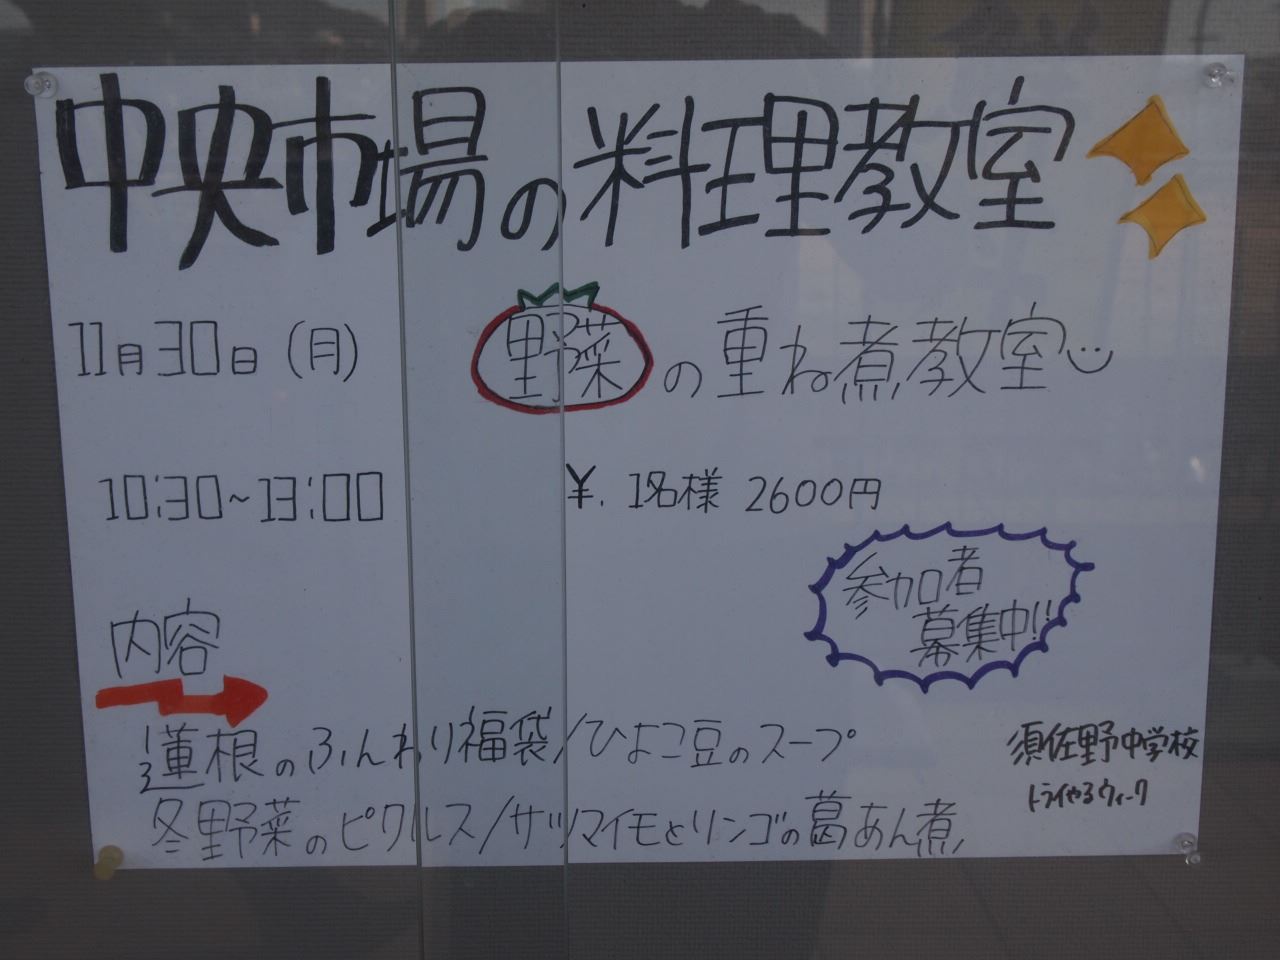 中央市場の料理教室
11月30日(月)
野菜の重ね煮教室
10:30~13:00
¥. 1名様 2600円
参加者
募集中!!
内容
蓮根のふんわり福袋/ひよこ豆のスープ
冬野菜のピクルス/サツマイモとリンゴの葛あん煮
須佐野中学校
トライやるウィーク